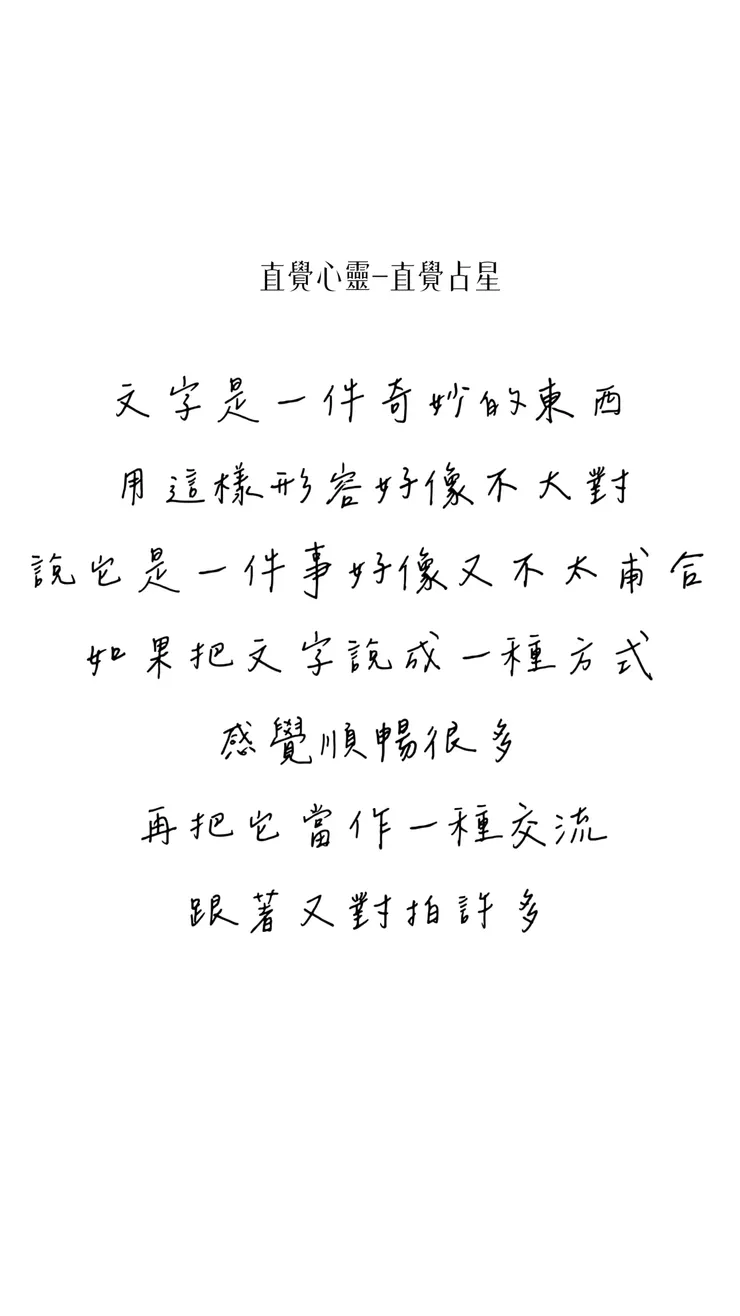 直覺心靈–直覺占星
文字是一件奇妙的東西
用這樣形容好像不大對
說它是一件事好像又不太甫合
如果把文字說成一種方式
感覺順暢很多
再把它當作一種交流
跟著又對拍許多